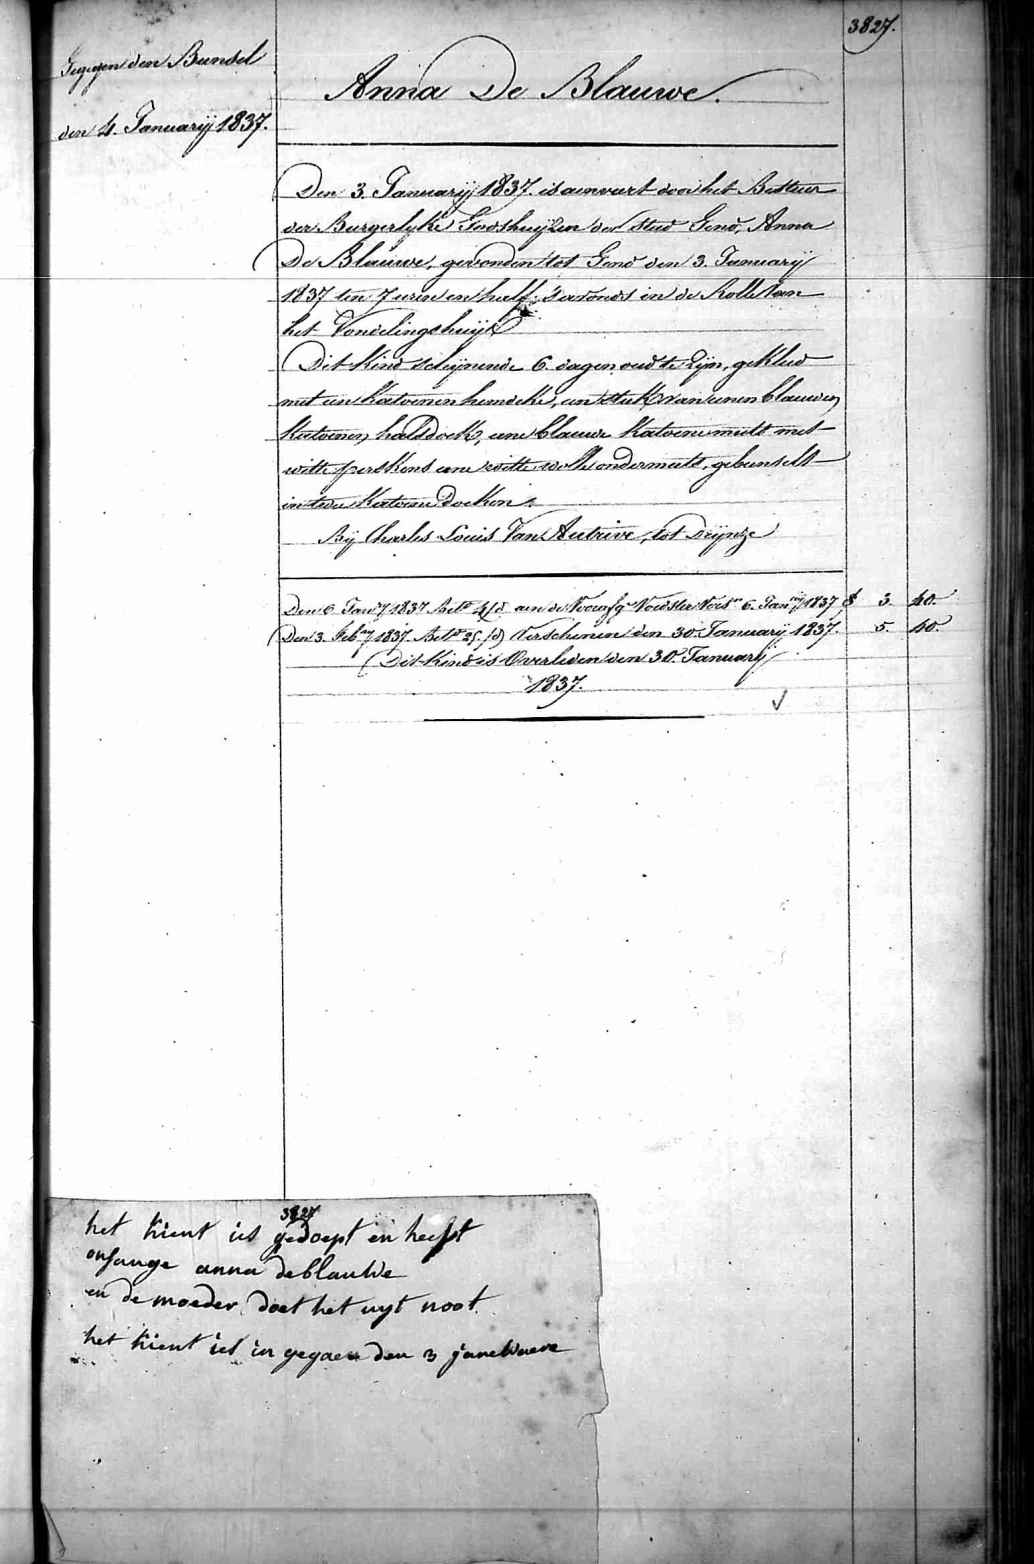 3827.
Gegeven den Bundel
den 4. Januarij 1837.
Anna De Blauwe.
Den 3. Januarij 1837. is aenvart door het Bestuer
der Burgerlyke Godshuijzen der stad Gend, Anna
De Blauwe, gevonden tot Gend den 3. Januarij
1837 ten 7 uren en half 's avonds in de Rolle van
het Vondelingshuijs
Dit kind schijnende 6. dagen oud te zijn, gekleed
met een katoenen hemdeke, een stuk van eenen blauwen
katoenen halsdoek, eene blauwe katoene muts met
witte perskens eene witte wolle ondermuts, gebunselt
in twee katoene doeken.
Bij Charles Louis Van Autrive, tot Deijnze
Den 6. Janrij 1837. Betd 4/d aen de Voedster 6. Janrij 1837 3. 40.
Den 3. Febrij 1837. Betd 25. /d) Verschenen den 30. Januarij 1837. 5. 40.
Dit kind is Overleden den 30. Januarij
1837.
3827
het kient is gedoept en heeft
onfange anna deblauwe
en de moeder doet het uyt noot
het kient is in gegaen den 3 janewaere